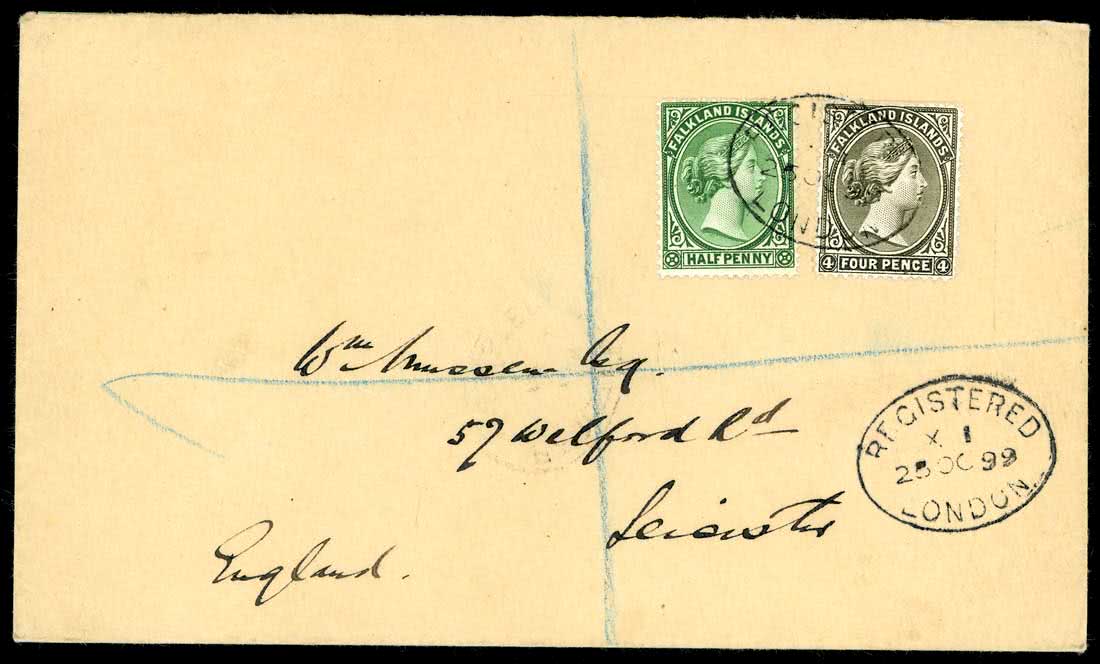 FALKLAND ISLANDS
HALFPENNY
FALKLAND ISLANDS
4 FOUR PENCE 4
LONDON
Wm Mussen Esq.
57 Welford Rd
Leicester
England.
REGISTERED
X 1
25 OC 99
LONDON